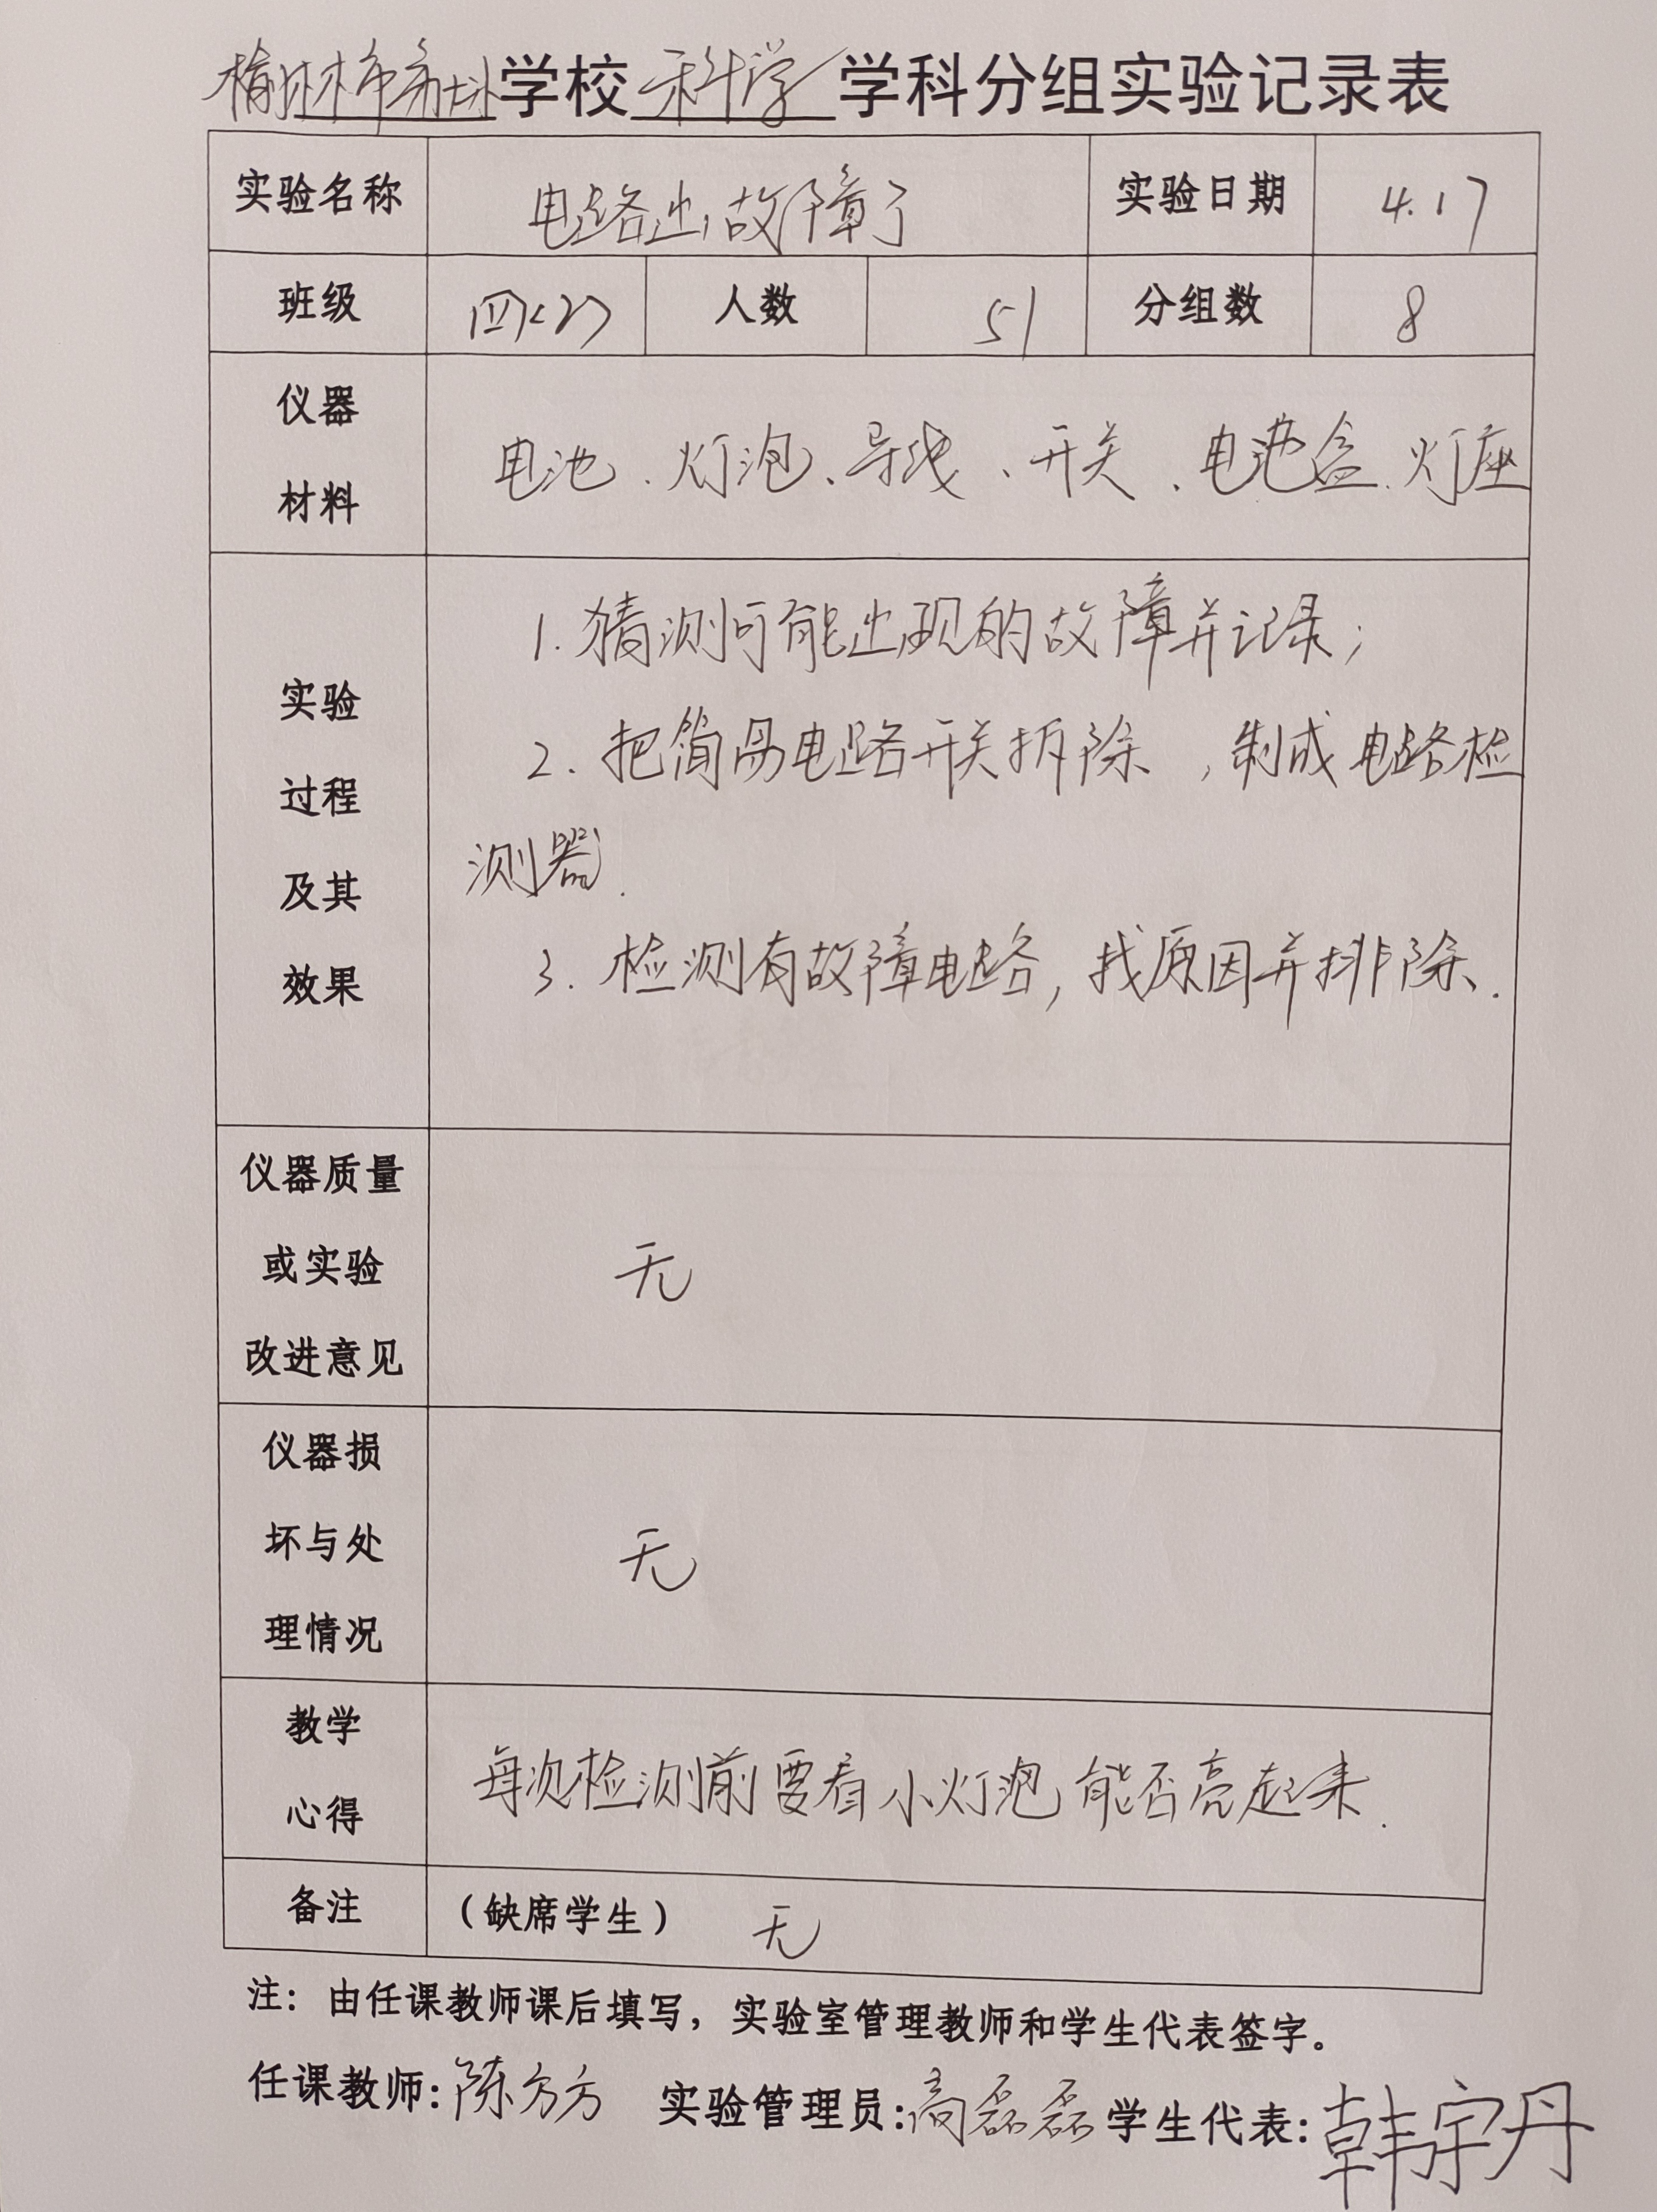 榆林市高坎学校 科学 学科分组实验记录表
实验名称 电路出故障了 实验日期 4.17
班级 四<2> 人数 51 分组数 8
仪器
材料
电池、灯泡、导线、开关、电池盒、灯座
实验
过程
及其
效果
1.猜测可能出现的故障并记录;
2.把简易电路开关拆除,制成电路检
测器.
3.检测有故障电路,找原因并排除.
仪器质量
或实验
改进意见
无
仪器损
坏与处
理情况
无
教学
心得
每次检测前要看小灯泡能否亮起来.
备注 (缺席学生) 无
注:由任课教师课后填写,实验室管理教师和学生代表签字。
任课教师:陈方方 实验管理员:高磊磊 学生代表:韩宇丹